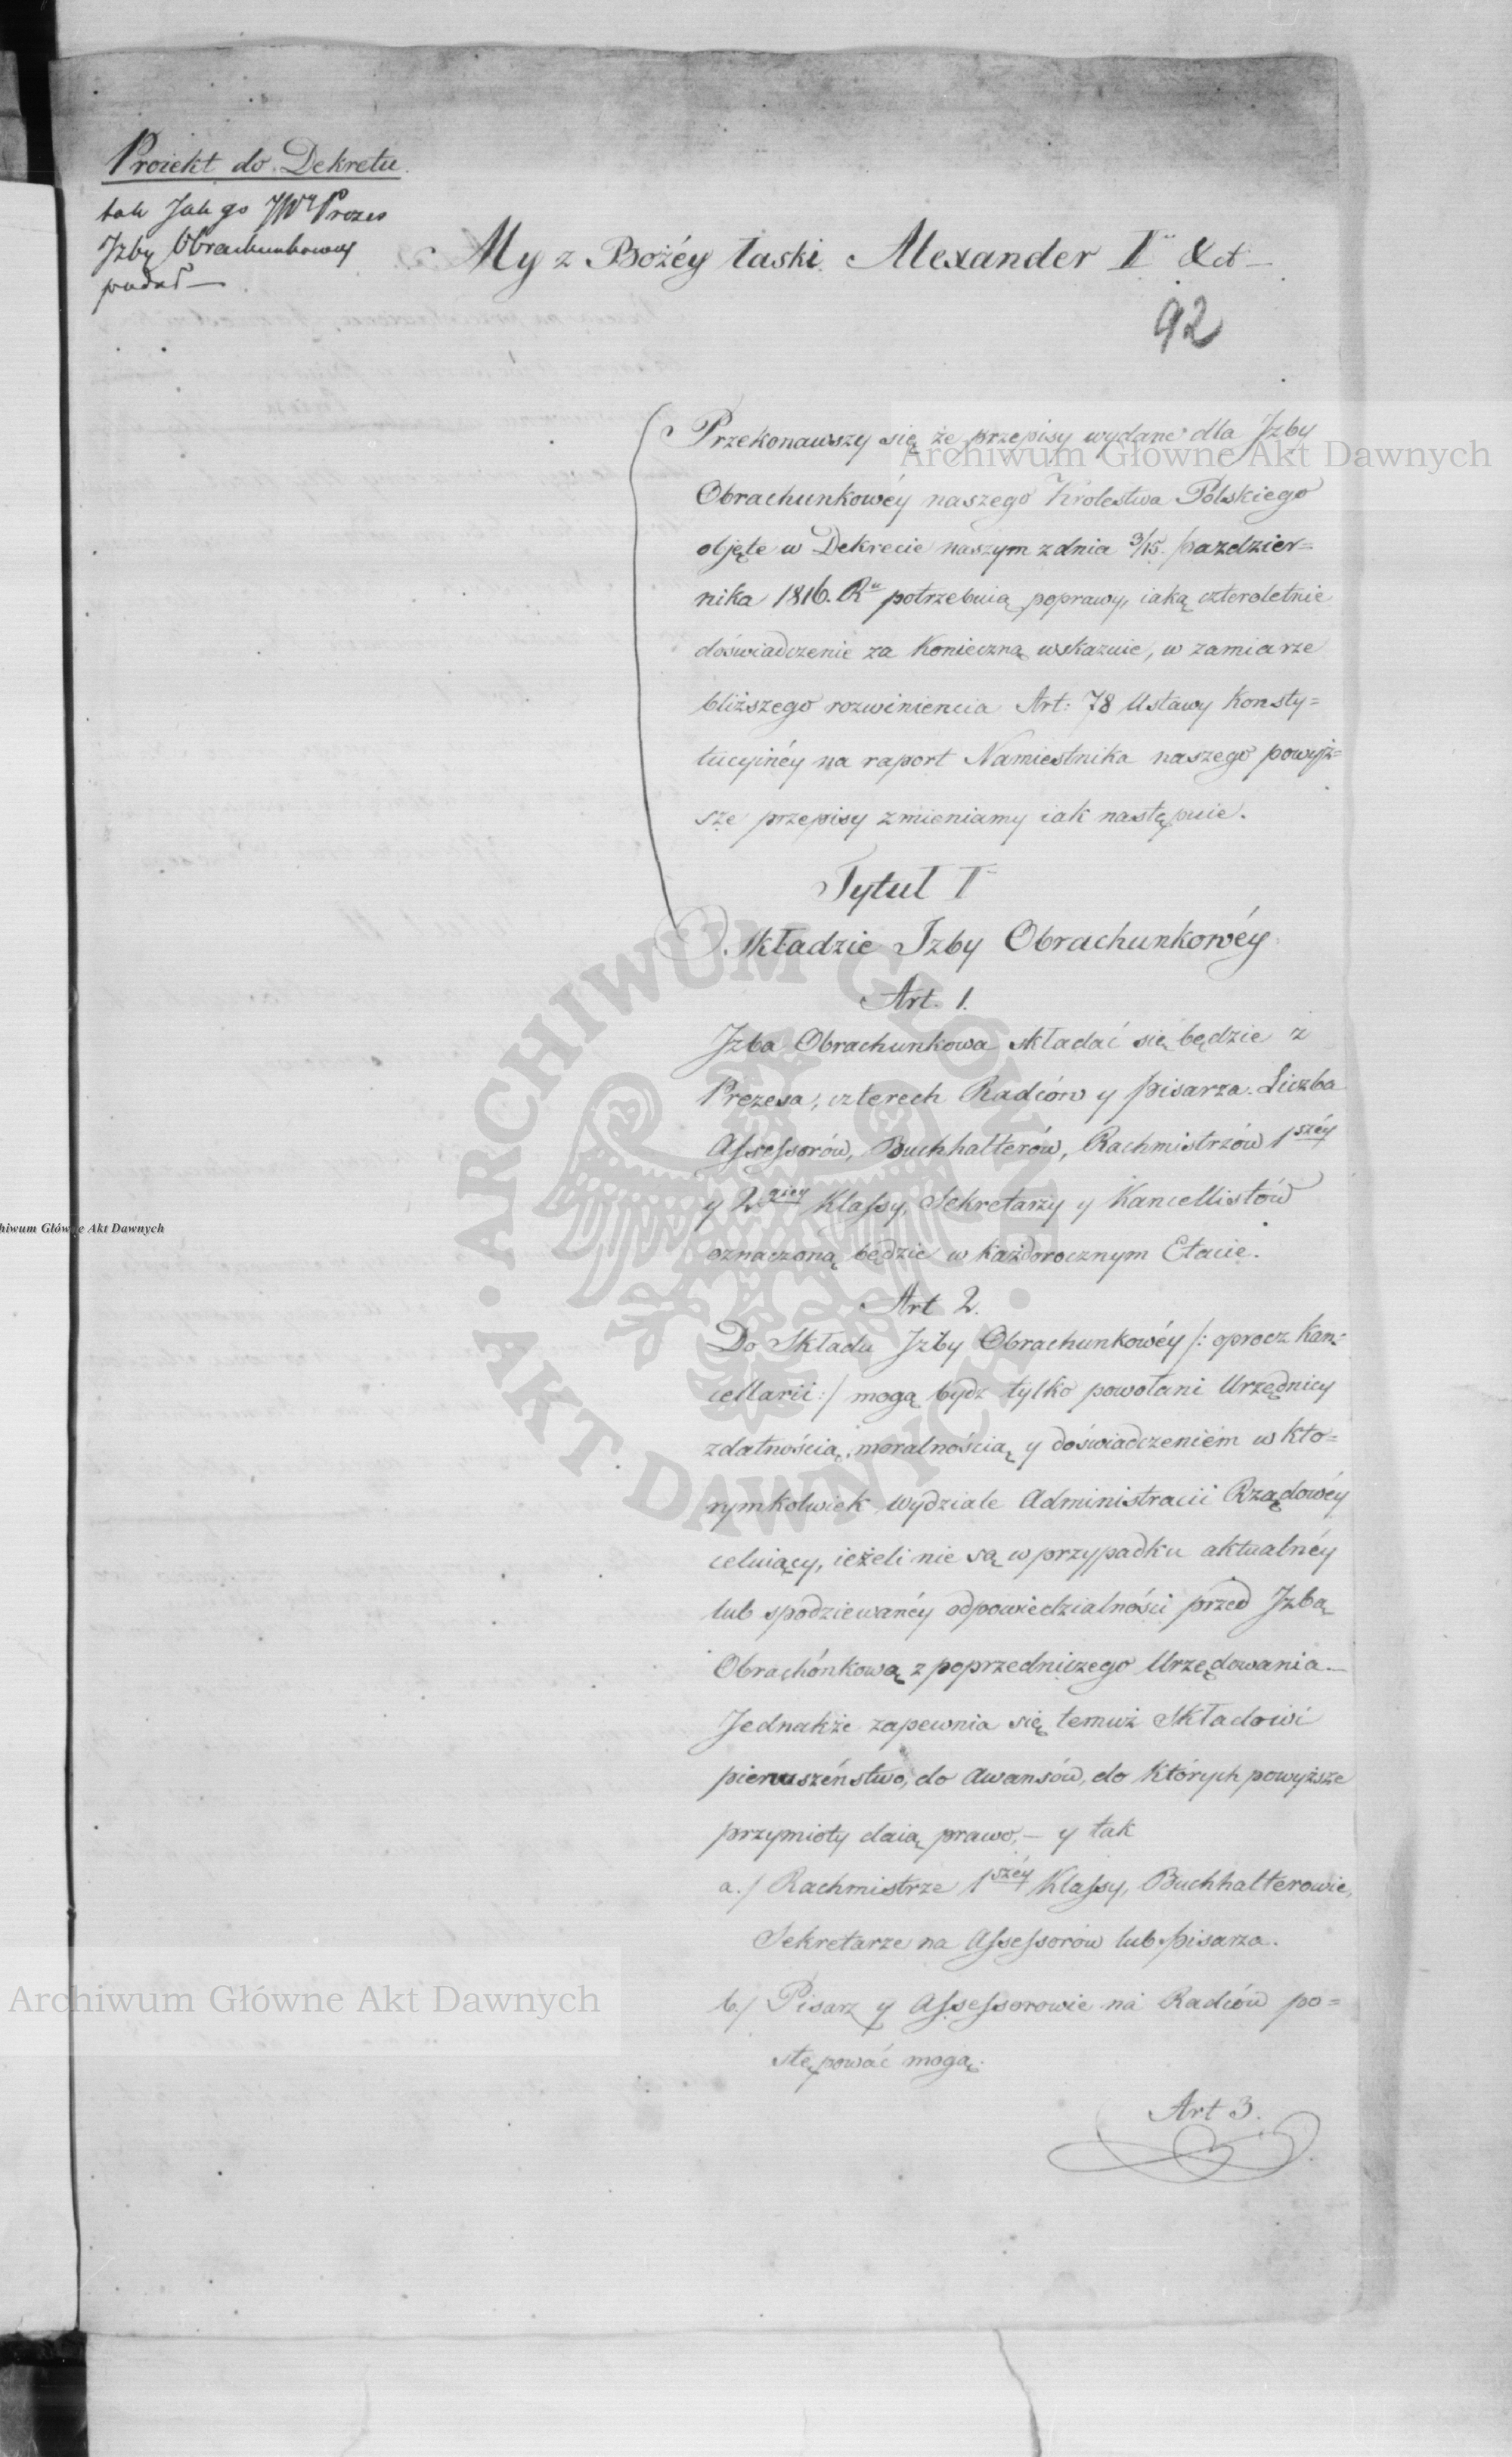 Proiekt do Dekretu.
tak Jak go JWy Prezes
Jzby Obrachunkowey
podał —
My z Bożéy łaski Alexander I &ct —
92
Przekonawszy się że przepisy wydane dla Jzby
Archiwum Główne Akt Dawnych
Obrachunkowéy naszego Krolestwa Polskiego
objęte w Dekrecie naszym z dnia 3/15. pazdzier=
nika 1816. Ru potrzebuią poprawy, iaką czteroletnie
doświadczenie za Konieczną wskazuie, w zamiarze
bliższego rozwiniencia Art: 78 Ustawy Konsty=
tucyinéy na raport Namiestnika naszego powyż=
sze przepisy zmieniamy iak następuie.
Tytuł I
O Składzie Izby Obrachunkowéy
Art. 1.
Jzba Obrachunkowa składać się będzie z
Prezesa, czterech Radców y pisarza. Liczba
Assessorów, Buchhalterów, Rachmistrzów 1széy
y 2giey Klassy, Sekretarzy y Kancellistów
oznaczoną będzie w każdorocznym Etacie.
Archiwum Główne Akt Dawnych
Art 2.
Do Składu Jzby Obrachunkowéy /: oprocz Kan=
cellarii :/ mogą bydz tylko powołani Urzędnicy
zdatnością, moralnością y doświadczeniem w kto=
rymkolwiek wydziale Administracii Rządowéy
celuiący, ieżeli nie są w przypadku aktualnéy
lub spodziewanéy odpowiedzialności przed Jzbą
Obrachónkową z poprzedniczego Urzędowania. —
Jednakże zapewnia się temuż Składowi
pierwszeństwo, do Awansów, do których powyższe
przymioty daią prawo, — y tak
a./ Rachmistrze 1széy Klassy, Buchhalterowie,
Sekretarze na Assessorów lub pisarza.
b./ Pisarz y Assessorowie na Radców po=
Archiwum Główne Akt Dawnych
stępować mogą.
Art 3.
ARCHIWUM GŁÓWNE · AKT DAWNYCH ·